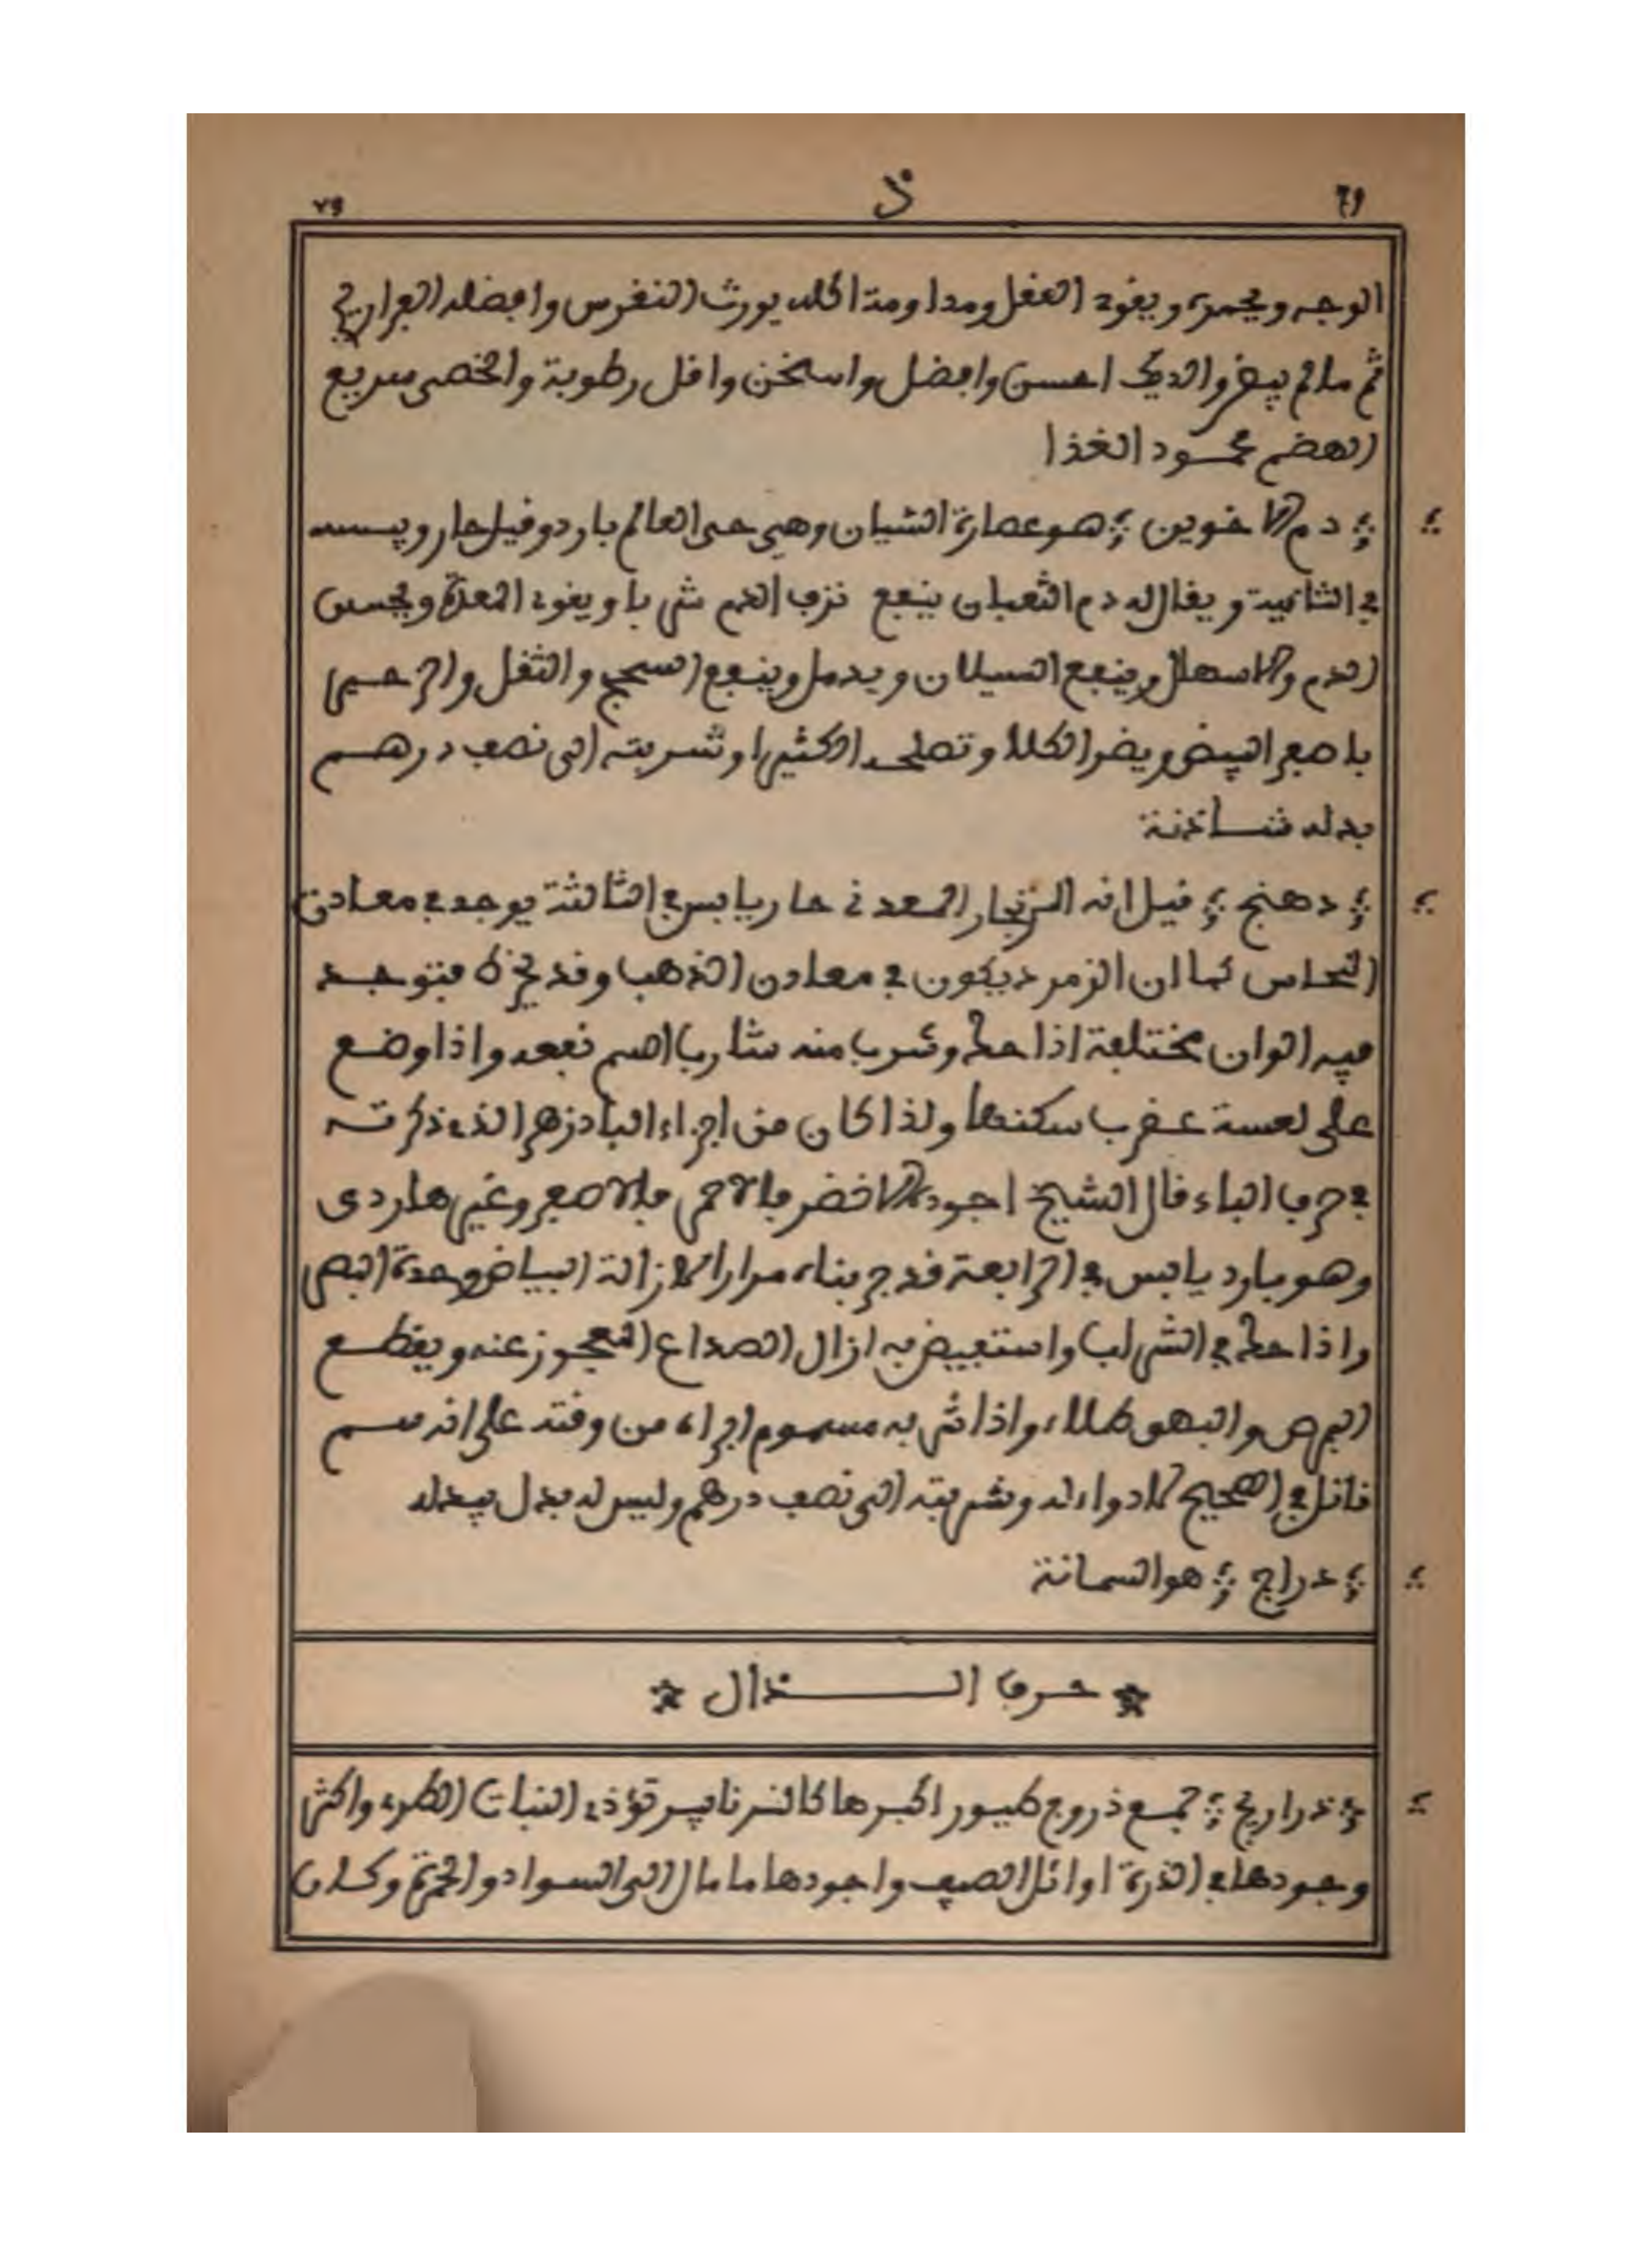 79 ذ ٧٩
الوجه ويحمره ويقوي العقل ومداومة اكله يورث النقرس وافضله الفراريج
ثم مالم يبض والديك احسن وافضل واسخن واقل رطوبة والخصى سريع
الهضم محمود الغذا
دم الاخوين هو عصارة الشيان وهي حى العالم بارد وقيل حار ويبسه
في الثانية ويقال له دم الثعبان ينفع نزف الدم شربا ويقوي المعدة ويحبس
الدم والاسهال وينفع السيلان ويدمل وينفع السحج والثقل والزحير
باصفر البيض ويضر الكلا وتصلحه الكثيرا وشربته الى نصف درهم
بدله شاذنة
دهنج قيل انه الزنجار المعدني حار يابس في الثالثة يوجد في معادن
النحاس كما ان الزمرد يكون في معادن الذهب وقد يخرط فتوجد
فيه الوان مختلفة اذا حك وشرب منه شارب السم نفعه واذا وضع
على لعسة عقرب سكنها ولذا كان من اجزاء البادزهر الذي ذكرته
في حرف الباء قال الشيخ اجوده الاخضر فالاحمر فالاصفر وغيرها ردى
وهو بارد يابس في الرابعة قد جربناه مرارا لازالة البياض وحدة البصر
واذا حك في الشراب واستفيض به ازال الصداع المعجوز عنه ويقطع
البرص والبهق طلاء واذا شربه مسموم ابراه من وقته على انه سم
قاتل في الصحيح لا دواء له وشربته الى نصف درهم وليس له بدل يبدله
دراج هو السمانة
حرف الذال
ذراريح جمع ذروح طيور اكبرها كالنرنابير تؤذي النبات الطرى واكثر
وجودها في الذرة اوائل الصيف واجودها ما مال الى السواد والحمرة وكان